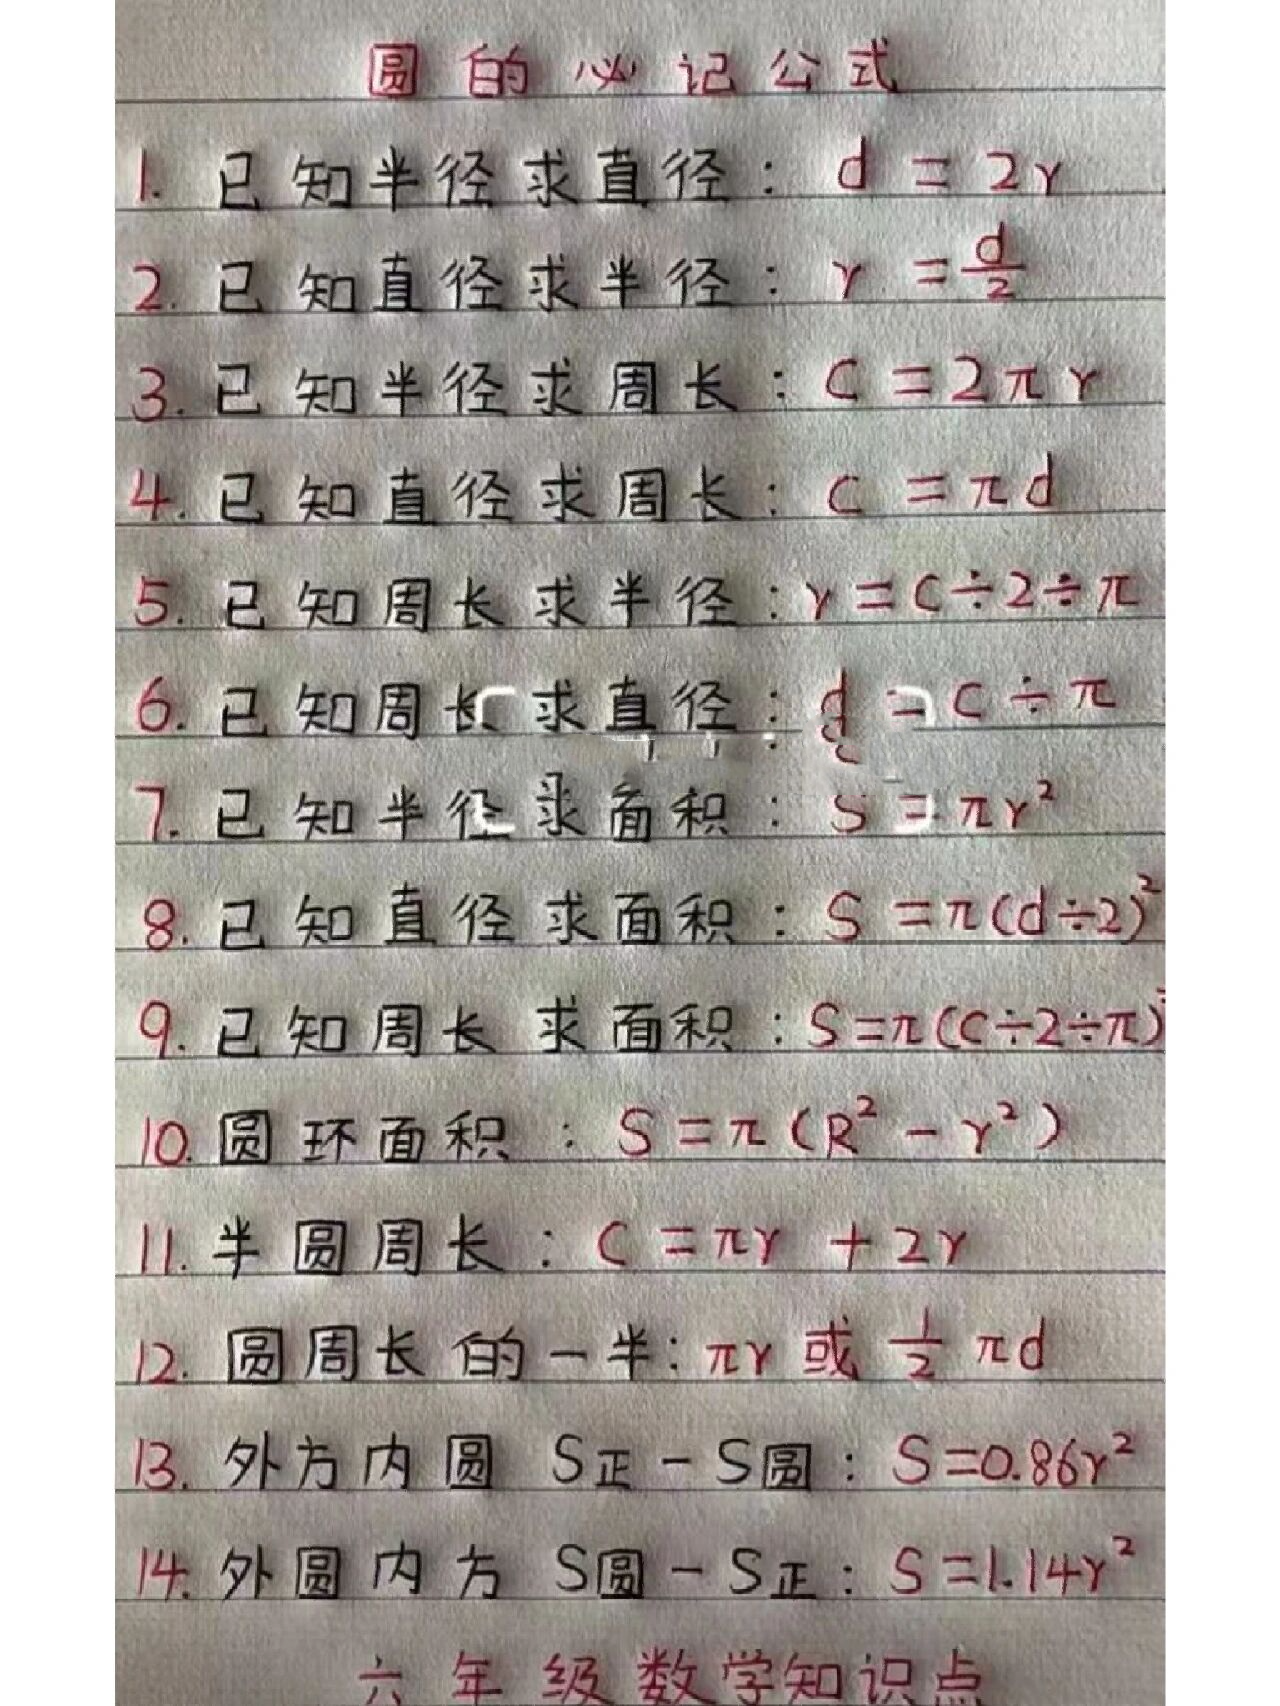 圆的必记公式
1. 已知半径求直径: d = 2r
2. 已知直径求半径: r = d/2
3. 已知半径求周长: C = 2πr
4. 已知直径求周长: C = πd
5. 已知周长求半径: r = C÷2÷π
6. 已知周长求直径: d = C÷π
7. 已知半径求面积: S = πr²
8. 已知直径求面积: S = π(d÷2)²
9. 已知周长求面积: S=π(C÷2÷π)
10. 圆环面积: S = π(R² - r²)
11. 半圆周长: C = πr + 2r
12. 圆周长的一半: πr 或 1/2 πd
13. 外方内圆 S正 - S圆: S=0.86r²
14. 外圆内方 S圆 - S正: S=1.14r²
六年级数学知识点